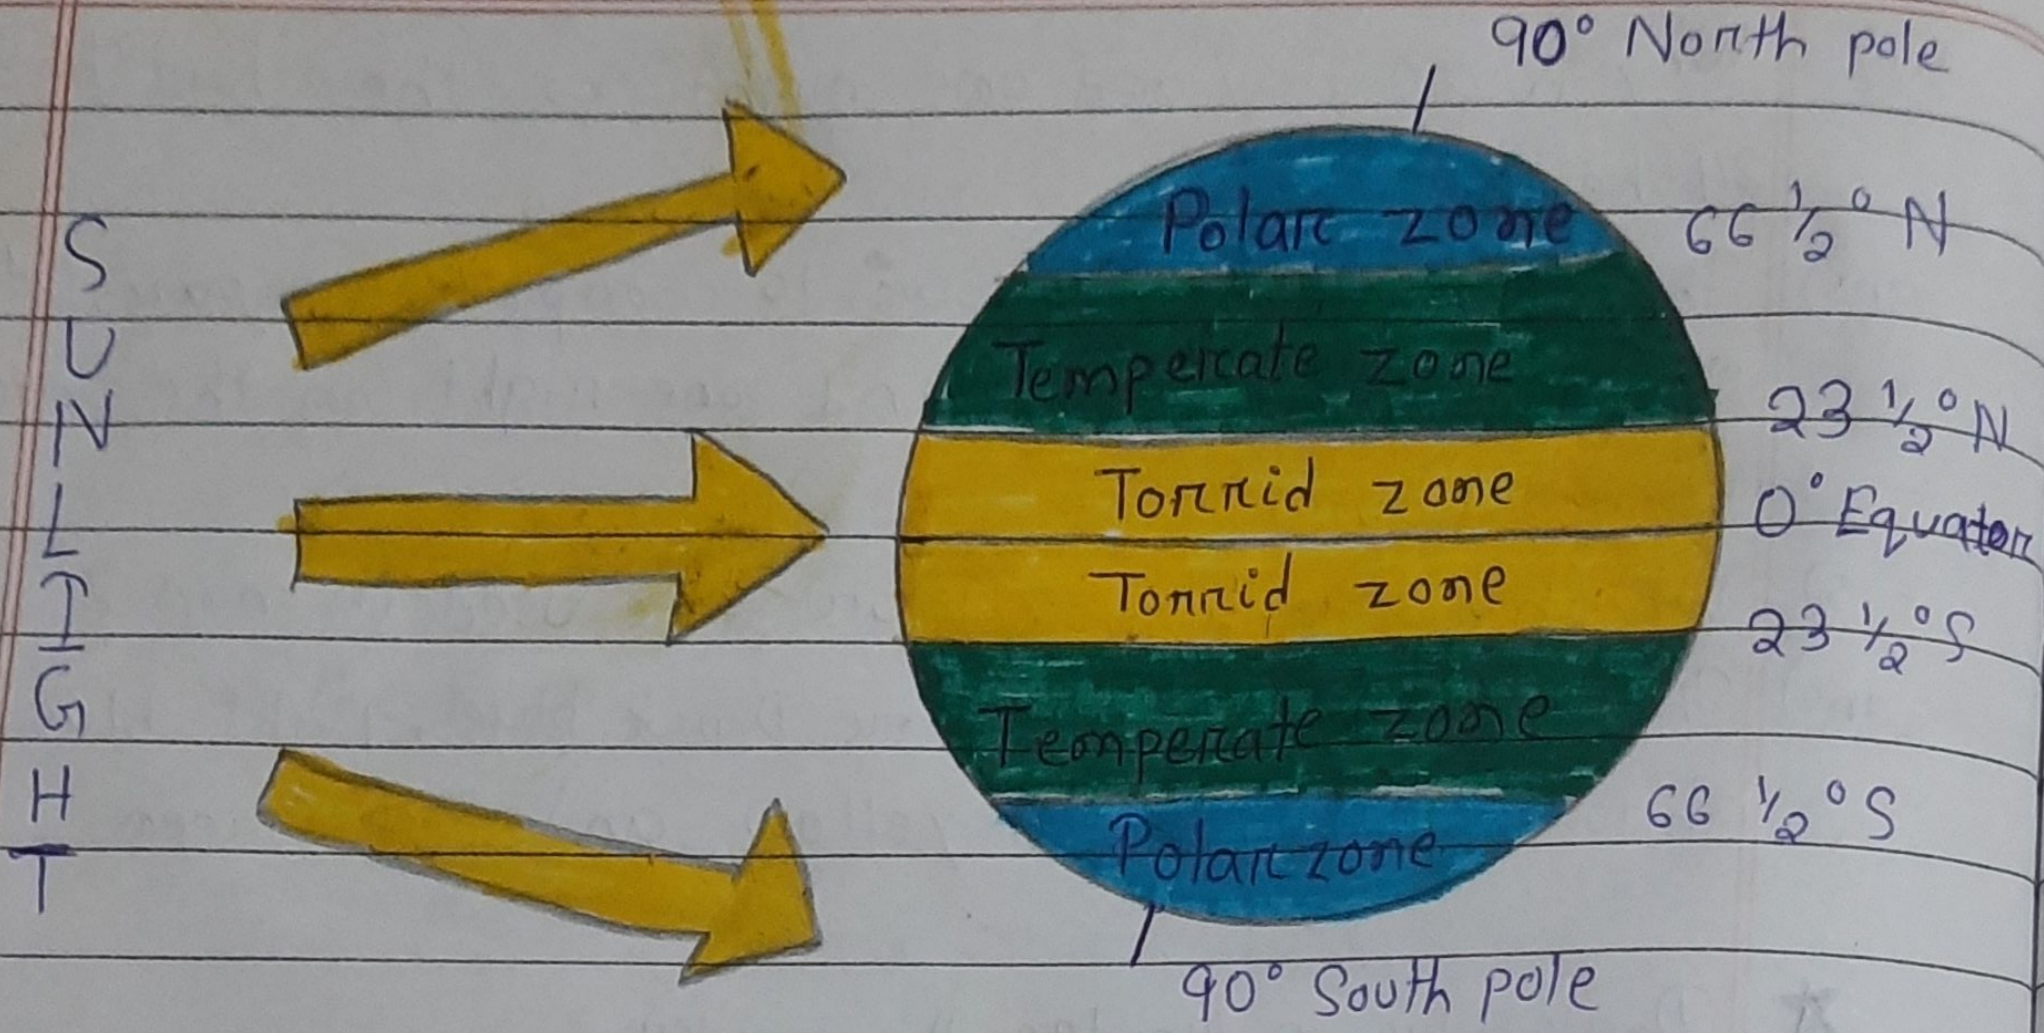 90° North pole
SUNLIGHT
Polar zone
66 1/2° N
Temperate zone
23 1/2° N
Torrid zone
0° Equator
Torrid zone
23 1/2° S
Temperate zone
66 1/2° S
Polar zone
90° South pole